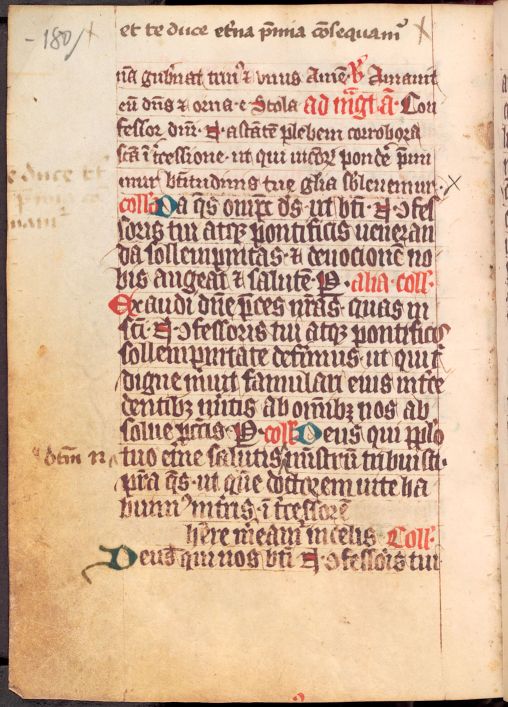 -180/
et te duce et'na p̄mia cōsequam²
nā gub'nat trin² & vnus Amē. V Amauit
eū dn̄s & orna. e Stola ad m̄gt ā. Con
fessor dn̄i. N astātē plebem corrobora
sc̄a ī t'cessione. ut qui uicior̄ pondē p̄mi
mur b'titudinis tue gl'ia sb'leuemur.
coll' Da qs om̄ps ds. ut bt̄i. N. ɔfes
soris tui atqʒ pontificis ueneran
da sollempnitas. & deuocionē no
bis augeat & salutē. P. alia. coll'.
Exaudi dn̄e p̄ces nr̄as. quas in
sc̄i. N. ɔfessoris tui atqʒ pontificis
sollempnitate deferimus. ut qui t'
digne muit famulari eius int'ce
dentibʒ m'itis ab om̄ibʒ nos ab
solue pctis. P. coll' Deus qui pplo
tuo et'ne salutis
p̄sta qs. ut quē doctorem uite ha
buim² in t'ris. ī t'cessorē
here m'eam² in celis. Coll'.
Deus qui nos bt̄i N. ɔfessoris tui